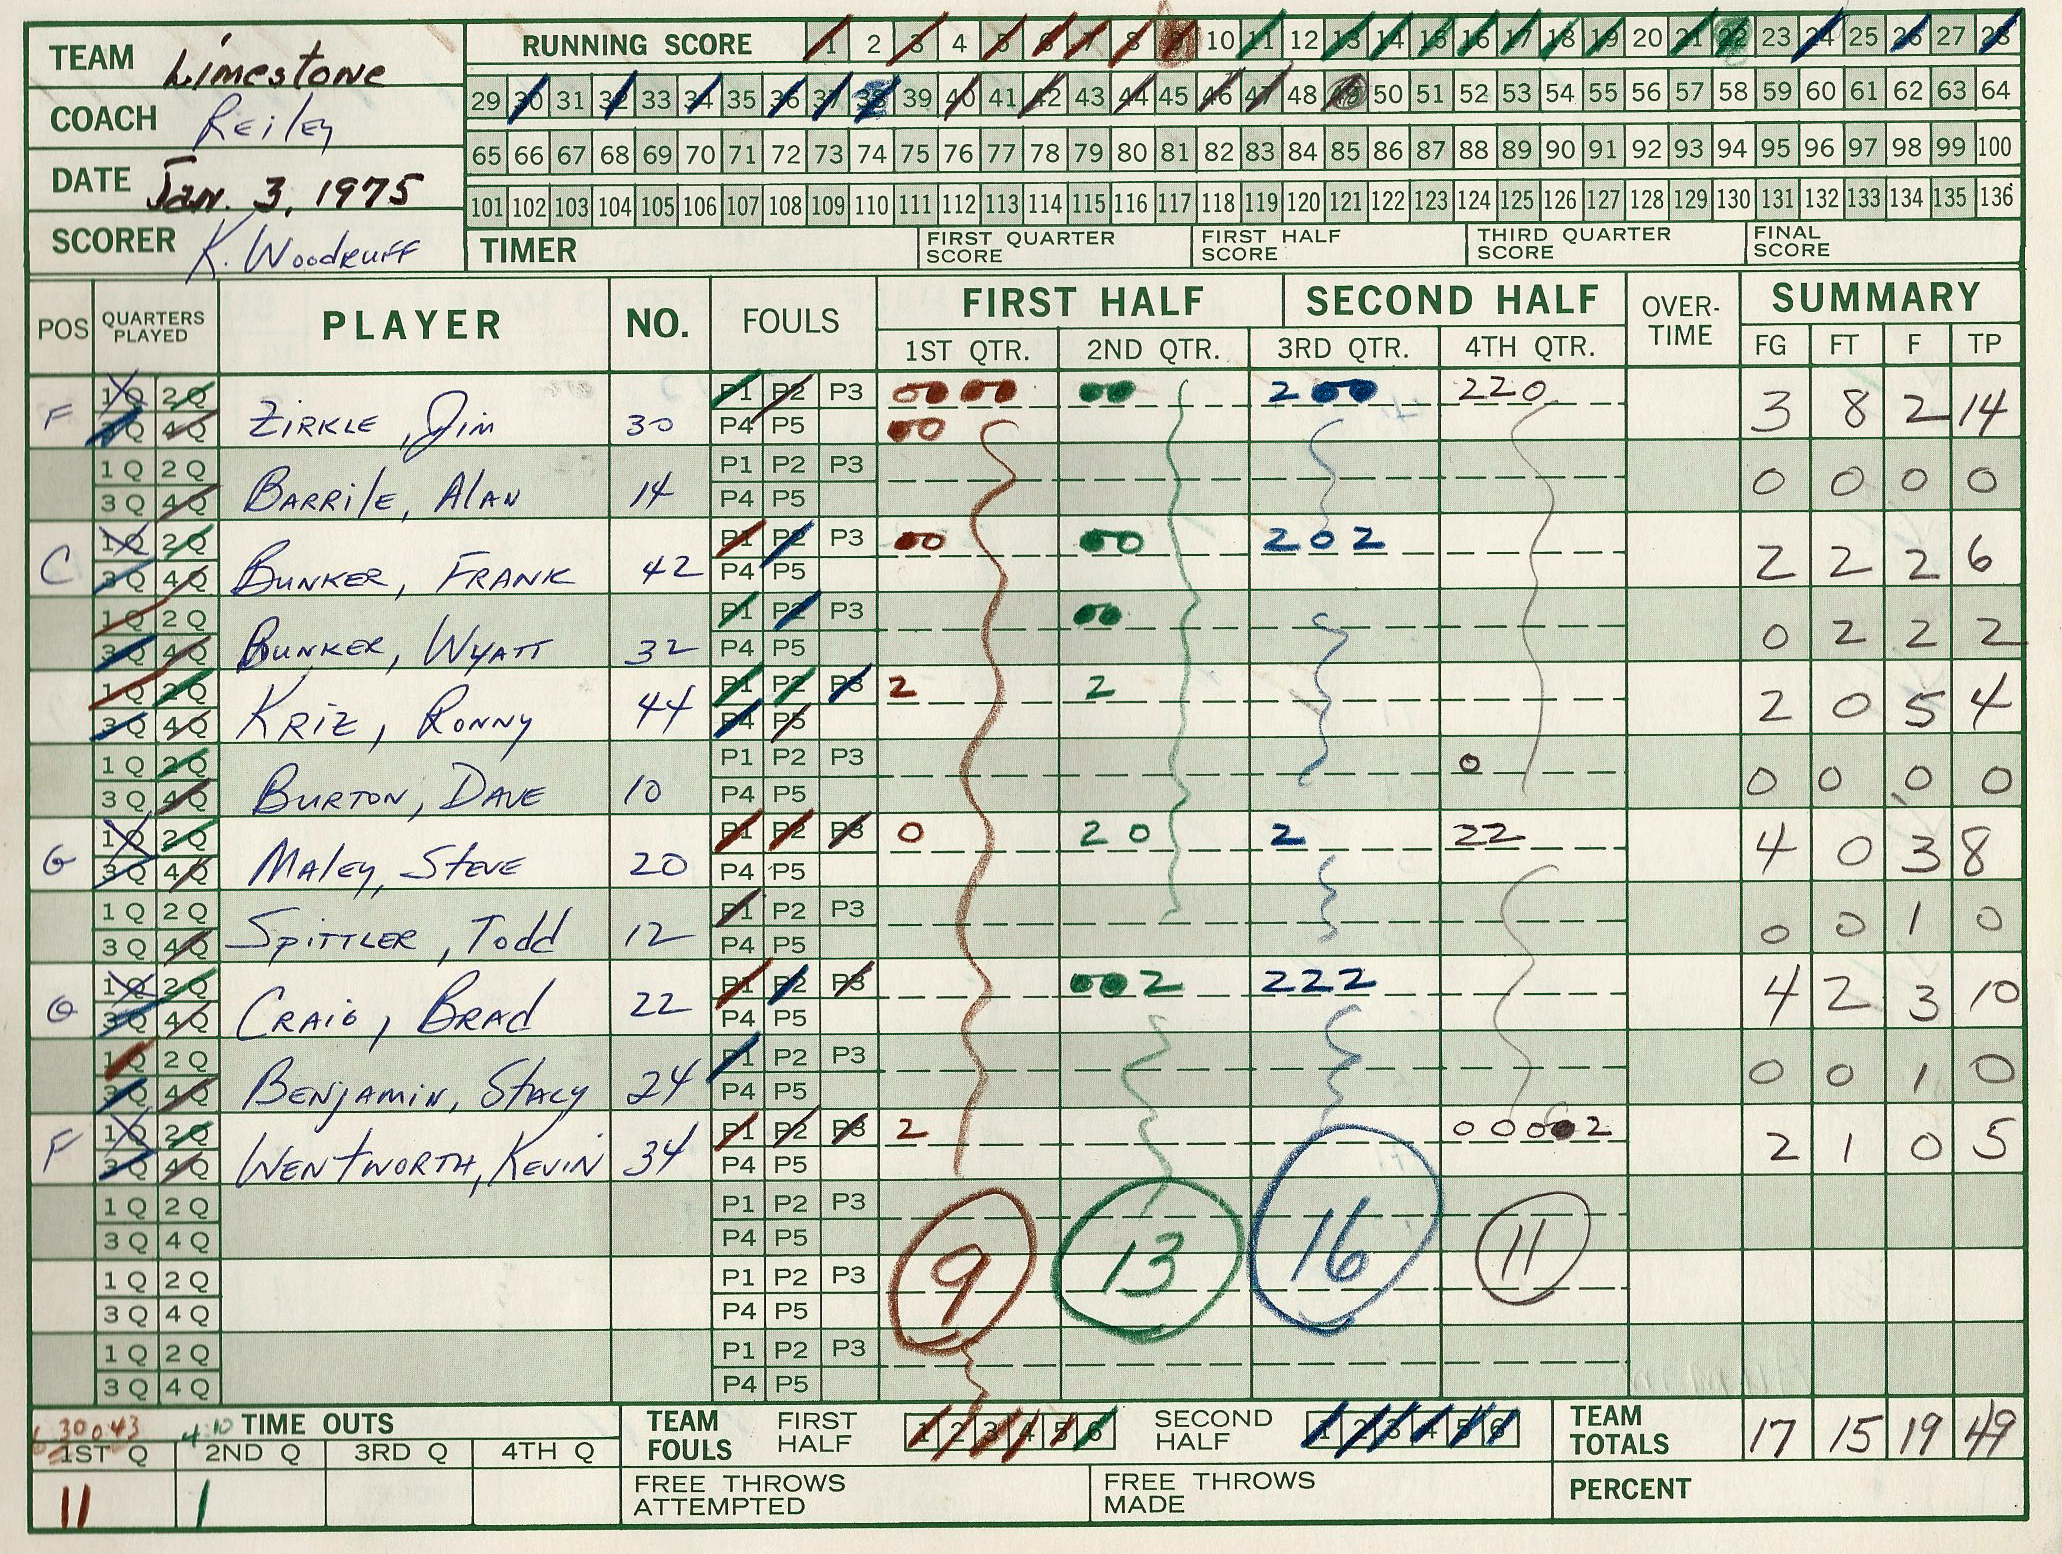 TEAM Limestone
COACH Reiley
DATE Jan. 3, 1975
SCORER K. Woodruff
RUNNING SCORE 1 2 3 4 5 6 7 8 9 10 11 12 13 14 15 16 17 18 19 20 21 22 23 24 25 26 27 28
29 30 31 32 33 34 35 36 37 38 39 40 41 42 43 44 45 46 47 48 49 50 51 52 53 54 55 56 57 58 59 60 61 62 63 64
65 66 67 68 69 70 71 72 73 74 75 76 77 78 79 80 81 82 83 84 85 86 87 88 89 90 91 92 93 94 95 96 97 98 99 100
101 102 103 104 105 106 107 108 109 110 111 112 113 114 115 116 117 118 119 120 121 122 123 124 125 126 127 128 129 130 131 132 133 134 135 136
TIMER FIRST QUARTER SCORE FIRST HALF SCORE THIRD QUARTER SCORE FINAL SCORE
POS QUARTERS PLAYED PLAYER NO. FOULS FIRST HALF SECOND HALF OVER-TIME SUMMARY
1ST QTR. 2ND QTR. 3RD QTR. 4TH QTR. FG FT F TP
F 1Q 2Q P1 P2 P3 2 0 0 2 2 0
3Q 4Q Zirkle, Jim 30 P4 P5 3 8 2 14
1Q 2Q P1 P2 P3
3Q 4Q Barrile, Alan 14 P4 P5 0 0 0 0
C 1Q 2Q P1 P2 P3 2 0 2
3Q 4Q Bunker, Frank 42 P4 P5 2 2 2 6
1Q 2Q P1 P2 P3
3Q 4Q Bunker, Wyatt 32 P4 P5 0 2 2 2
1Q 2Q P1 P2 P3 2 2
3Q 4Q Kriz, Ronny 44 P4 P5 2 0 5 4
1Q 2Q P1 P2 P3 0
3Q 4Q Burton, Dave 10 P4 P5 0 0 0 0
G 1Q 2Q P1 P2 P3 0 2 0 2 2 2
3Q 4Q Maley, Steve 20 P4 P5 4 0 3 8
1Q 2Q P1 P2 P3
3Q 4Q Spittler, Todd 12 P4 P5 0 0 1 0
G 1Q 2Q P1 P2 P3 2 2 2 2
3Q 4Q Craig, Brad 22 P4 P5 4 2 3 10
1Q 2Q P1 P2 P3
3Q 4Q Benjamin, Stacy 24 P4 P5 0 0 1 0
F 1Q 2Q P1 P2 P3 2 0 0 0 0 2
3Q 4Q Wentworth, Kevin 34 P4 P5 2 1 0 5
1Q 2Q P1 P2 P3
3Q 4Q P4 P5
9 13 16 11
1Q 2Q P1 P2 P3
3Q 4Q P4 P5
1Q 2Q P1 P2 P3
3Q 4Q P4 P5
TIME OUTS 4:10
1ST Q 2ND Q 3RD Q 4TH Q
TEAM FOULS FIRST HALF 1 2 3 4 5 6 SECOND HALF 1 2 3 4 5 6
TEAM TOTALS 17 15 19 49
FREE THROWS ATTEMPTED FREE THROWS MADE PERCENT